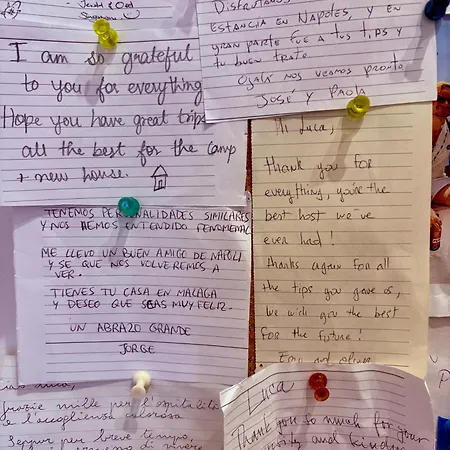 I am so grateful
to you for everything
Hope you have great trips
all the best for the camp
+ new house.
Disfrutamos
estancia en Napoles, y en
gran parte fue a tus tips y
tu buen trato.
Ojalá nos veamos pronto
José y Paola
Hi Luca,
thank you for
everything, you're the
best host we've
ever had!
thanks again for all
the tips you gave us,
we wish you the best
for the future!
and
TENEMOS PERSONALIDADES SIMILARES
Y NOS HEMOS ENTENDIDO FENOMENAL
ME LLEVO UN BUEN AMIGO DE NAPOLI
Y SE QUE NOS VOLVEREMOS A
VER.
TIENES TU CASA EN MALAGA
Y DESEO QUE SEAS MUY FELIZ.
UN ABRAZO GRANDE
JORGE
Grazie mille per l'ospitalità
e l'accoglienza calorosa
Seppur per breve tempo,
di vivere
Luca
Thank you so much for your
and